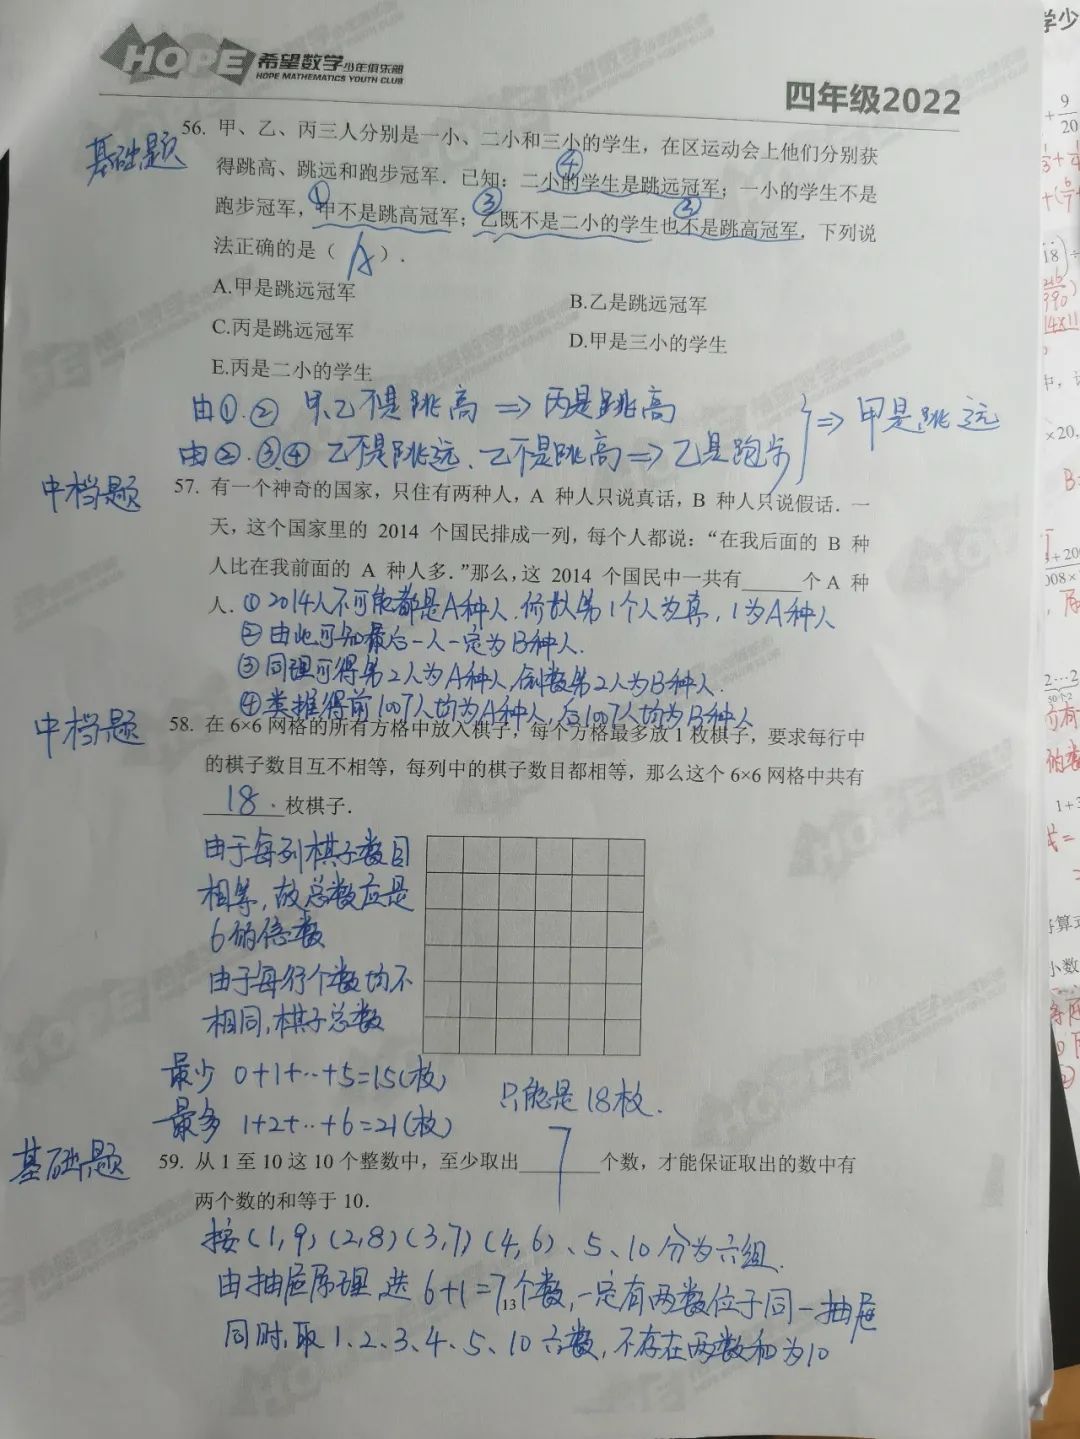 HOPE 希望数学少年俱乐部
HOPE MATHEMATICS YOUTH CLUB
四年级2022
基础题
56. 甲、乙、丙三人分别是一小、二小和三小的学生，在区运动会上他们分别获
得跳高、跳远和跑步冠军．已知：二小的学生是跳远冠军；一小的学生不是
④
跑步冠军，甲不是跳高冠军；乙既不是二小的学生也不是跳高冠军．下列说
① ③ ②
法正确的是（ A ）．
A.甲是跳远冠军
B.乙是跳远冠军
C.丙是跳远冠军
D.甲是三小的学生
E.丙是二小的学生
由①.② 甲.乙不是跳高 => 丙是跳高
由②.③.④ 乙不是跳远、乙不是跳高 => 乙是跑步
=> 甲是跳远
中档题
57. 有一个神奇的国家，只住有两种人，A 种人只说真话，B 种人只说假话．一
天，这个国家里的 2014 个国民排成一列，每个人都说：“在我后面的 B 种
人比在我前面的 A 种人多．”那么，这 2014 个国民中一共有______个 A 种
人．
① 2014人不可能都是A种人.倒数第1个人为真，1为A种人
② 由此可知最后一人一定为B种人.
③ 同理可得第2人为A种人,倒数第2人为B种人.
④ 类推得前1007人均为A种人,后1007人均为B种人
中档题
58. 在 6×6 网格的所有方格中放入棋子，每个方格最多放 1 枚棋子，要求每行中
的棋子数目互不相等，每列中的棋子数目都相等，那么这个 6×6 网格中共有
18. 枚棋子．
由于每列棋子数目
相等，故总数应是
6的倍数
由于每行个数均不
相同,棋子总数
最少 0+1+…+5=15(枚)
最多 1+2+…+6=21(枚)
只能是18枚.
基础题
59. 从 1 至 10 这 10 个整数中，至少取出 7 个数，才能保证取出的数中有
两个数的和等于 10．
按(1,9)(2,8)(3,7)(4,6)、5、10分为六组.
由抽屉原理,选6+1=7个数,一定有两数位于同一抽屉
13
同时,取1、2、3、4、5、10六数,不存在两数和为10